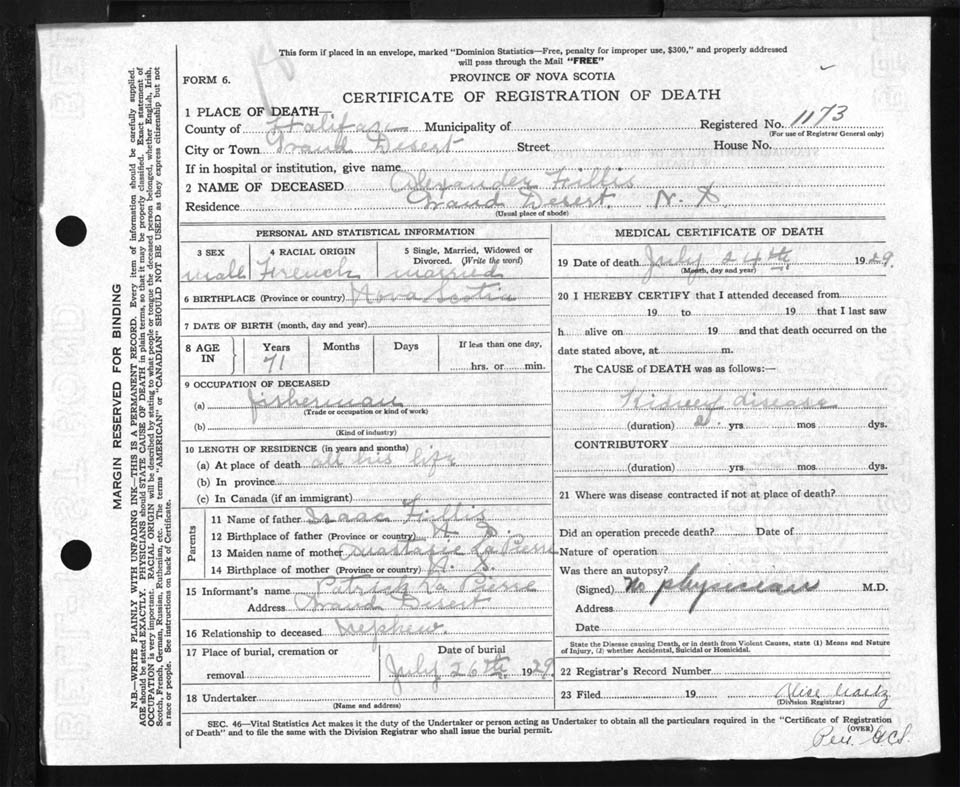 This form if placed in an envelope, marked "Dominion Statistics—Free, penalty for improper use, $300," and properly addressed
will pass through the Mail "FREE"
FORM 6.
PROVINCE OF NOVA SCOTIA
CERTIFICATE OF REGISTRATION OF DEATH
1 PLACE OF DEATH—
County of Halifax Municipality of Registered No. 1173
(For use of Registrar General only)
City or Town Grand Desert Street House No.
If in hospital or institution, give name
2 NAME OF DECEASED Alexander Fillis
Residence Grand Desert. N. S.
(Usual place of abode)
PERSONAL AND STATISTICAL INFORMATION
3 SEX 4 RACIAL ORIGIN 5 Single, Married, Widowed or
Divorced. (Write the word)
male French married
6 BIRTHPLACE (Province or country) Nova Scotia
7 DATE OF BIRTH (month, day and year)
8 AGE IN Years Months Days If less than one day,
71 hrs. or min.
9 OCCUPATION OF DECEASED
(a) fisherman
(Trade or occupation or kind of work)
(b)
(Kind of industry)
10 LENGTH OF RESIDENCE (in years and months)
(a) At place of death all his life
(b) In province
(c) In Canada (if an immigrant)
Parents
11 Name of father Isaac Fillis
12 Birthplace of father (Province or country) N. S.
13 Maiden name of mother La Pierre
14 Birthplace of mother (Province or country) N. S.
15 Informant's name Patrick La Pierre
Address Grand Desert
16 Relationship to deceased nephew.
17 Place of burial, cremation or Date of burial
removal July 26th 1929.
18 Undertaker
(Name and address)
MEDICAL CERTIFICATE OF DEATH
19 Date of death July 24th. 1929.
(Month, day and year)
20 I HEREBY CERTIFY that I attended deceased from
19 to 19 that I last saw
h alive on 19 and that death occurred on the
date stated above, at m.
The CAUSE of DEATH was as follows:—
Kidney disease
(duration) 2. yrs mos dys.
CONTRIBUTORY
(duration) yrs mos dys.
21 Where was disease contracted if not at place of death?
Did an operation precede death? Date of
Nature of operation
Was there an autopsy?
(Signed) No physician M.D.
Address
Date
State the Disease causing Death, or in death from Violent Causes, state (1) Means and Nature
of Injury, (2) whether Accidental, Suicidal or Homicidal.
22 Registrar's Record Number
23 Filed 19 Alice
(Division Registrar)
SEC. 46—Vital Statistics Act makes it the duty of the Undertaker or person acting as Undertaker to obtain all the particulars required in the "Certificate of Registration
of Death" and to file the same with the Division Registrar who shall issue the burial permit.
(OVER)
Per.
MARGIN RESERVED FOR BINDING
N.B.—WRITE PLAINLY WITH UNFADING INK—THIS IS A PERMANENT RECORD. Every item of information should be carefully supplied.
AGE should be stated EXACTLY. PHYSICIANS should STATE CAUSE OF DEATH in plain terms, so that it may be properly classified. Exact statement of
OCCUPATION is very important. RACIAL ORIGIN will be described by stating to what people or tongue the deceased person belonged, whether English, Irish,
Scotch, French, German, Russian, Ruthenian, etc. The terms "AMERICAN" or "CANADIAN" SHOULD NOT BE USED as they express citizenship but not
a race or people. See instructions on back of Certificate.